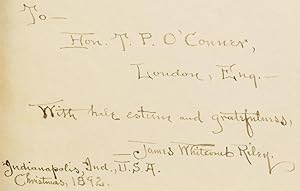 To—
Hon. T. P. O'Conner,
London, Eng.—
With hale esteem and gratefulness,
—James Whitcomb Riley.
Indianapolis, Ind., U.S.A.
Christmas, 1892.